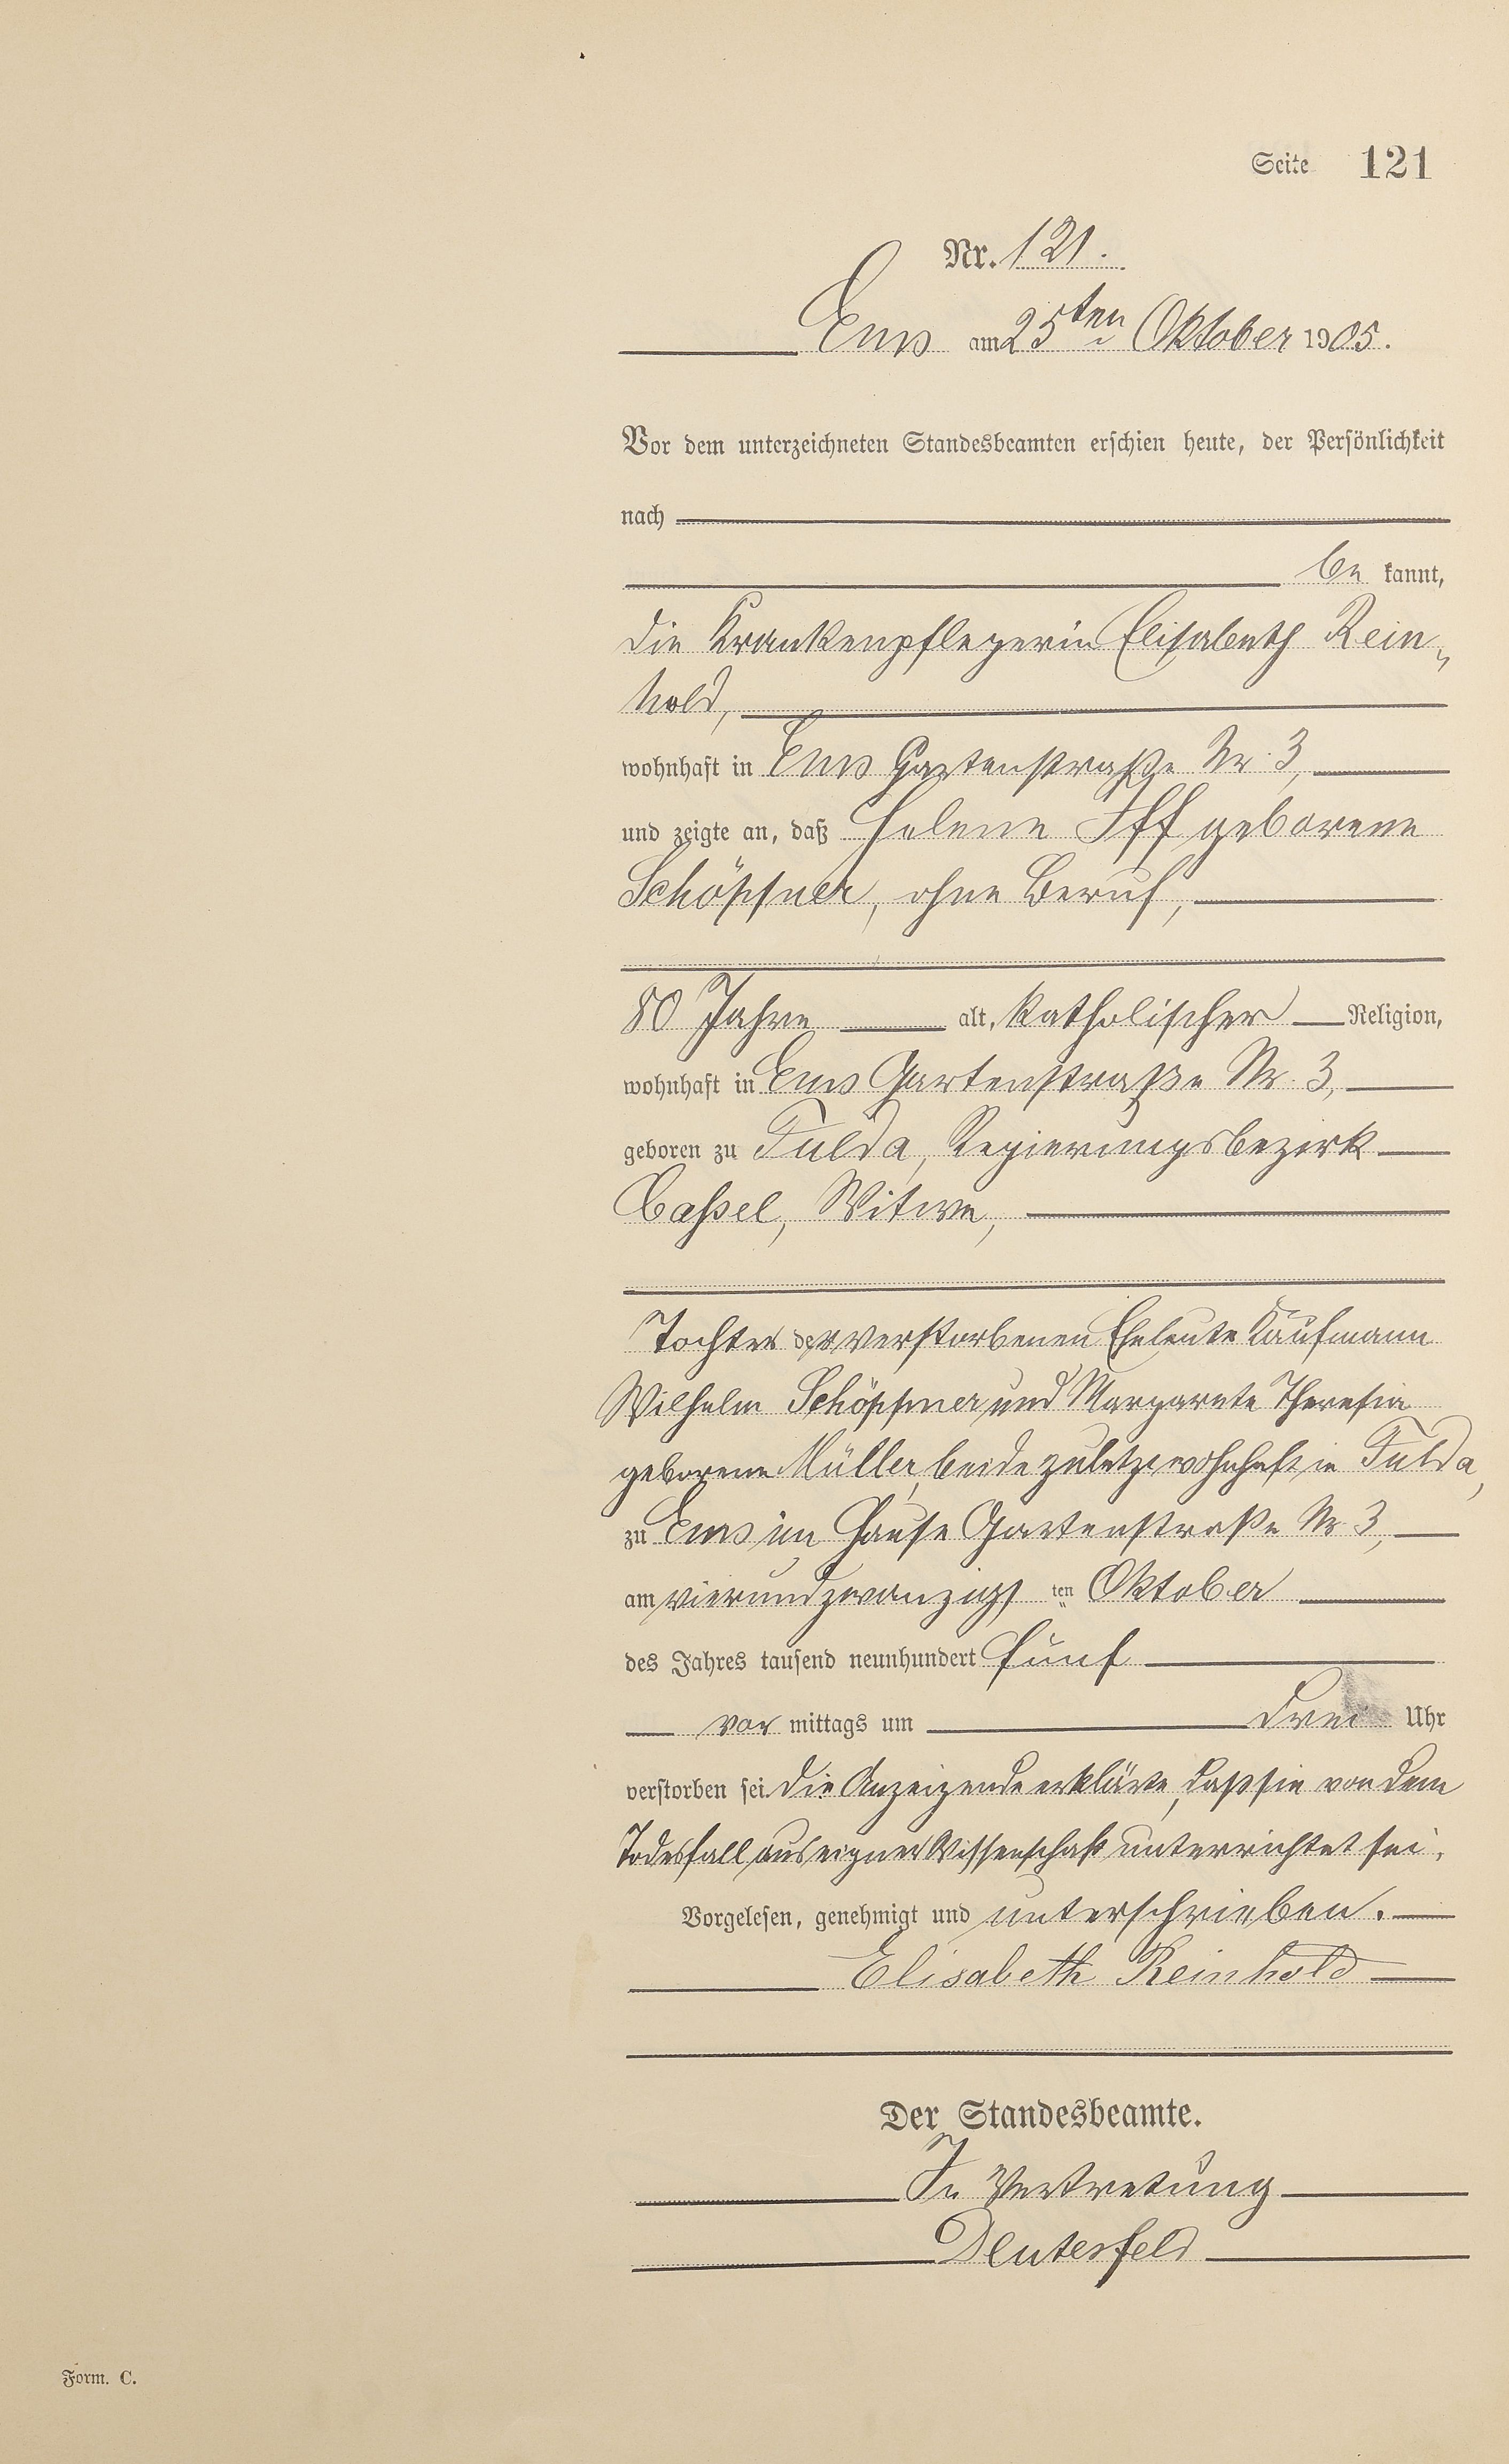 Seite 121
Nr. 121.
Ems am 25ten Oktober 1905.
Vor dem unterzeichneten Standesbeamten erschien heute, der Persönlichkeit
nach
be kannt,
die Krankenpflegerin Elisabeth Rein-
hold,
wohnhaft in Ems Gartenstraße Nr. 3,
und zeigte an, daß Helene Iff geborene
Schöppner, ohne Beruf,
80 Jahre alt, katholischer Religion,
wohnhaft in Ems Gartenstraße Nr. 3,
geboren zu Fulda, Regierungsbezirk
Cassel, Witwe,
Tochter der verstorbenen Eheleute Kaufmann
Wilhelm Schöppner und Margarete Theresia
geborene Müller, beide zuletzt wohnhaft in Fulda,
zu Ems im Hause Gartenstraße Nr 3,
am vierundzwanzigs ten Oktober
des Jahres tausend neunhundert fünf
vor mittags um drei Uhr
verstorben sei. Die Anzeigende erklärte, daß sie von dem
Todesfall aus eigner Wissenschaft unterrichtet sei.
Vorgelesen, genehmigt und unterschrieben.
Elisabeth Reinhold
Der Standesbeamte.
In Vertretung
Deutesfeld
Form. C.